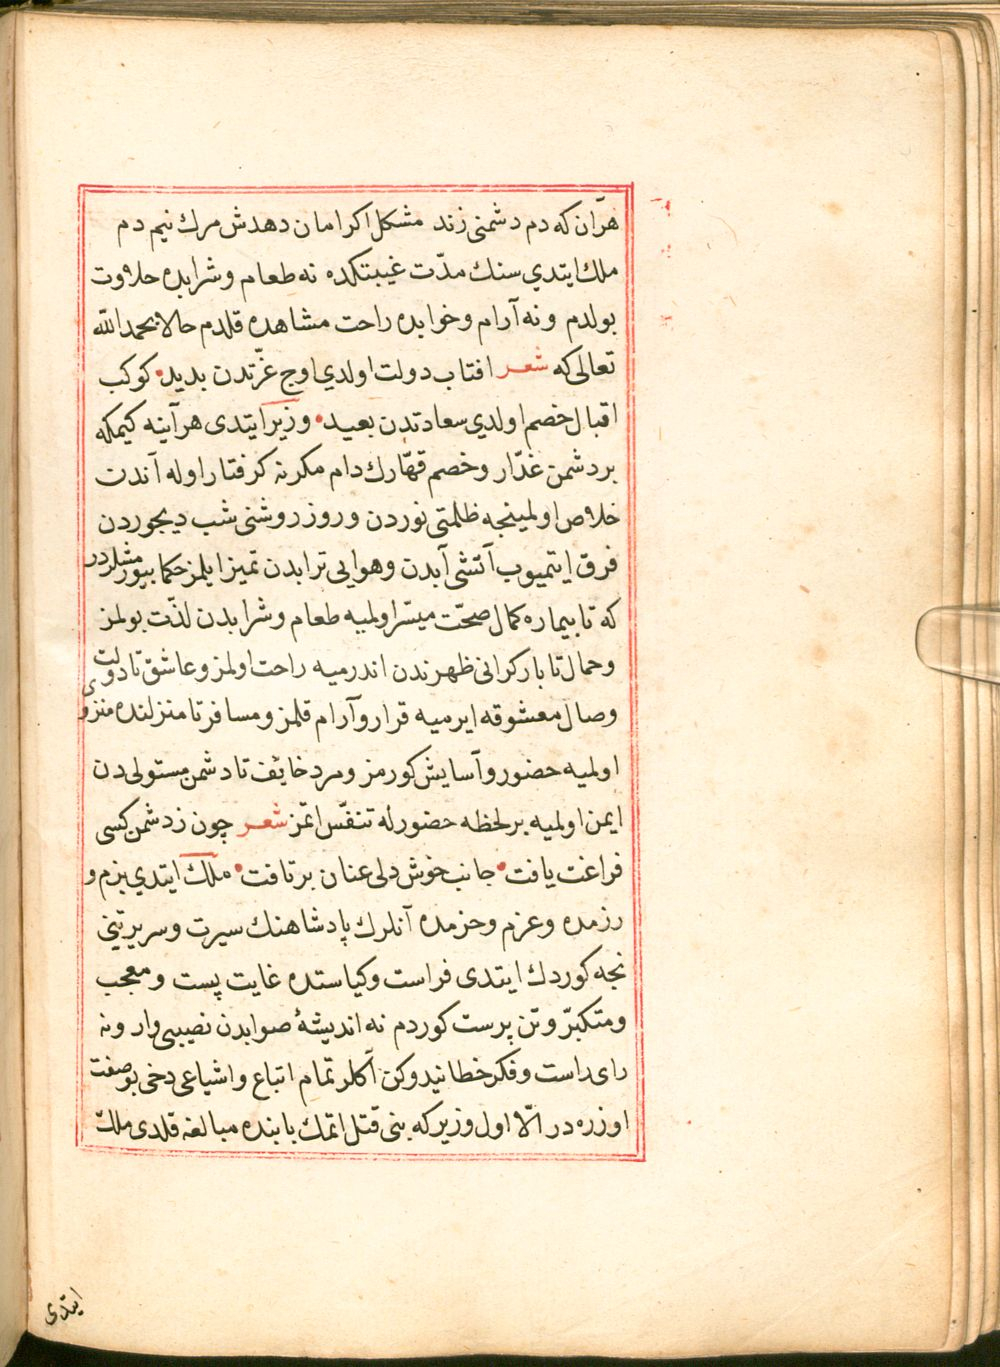 هرآن که دم دشمنی زند مشکل اکر امان دهدش مرك نیم دم
ملك ایتدي سنك مدّت غیبتکده نه طعام وشرابده حلاوت
بولدم ونه آرام وخوابده راحت مشاهده قلدم حالا بحمدالله
تعالی که شعر افتاب دولت اولدي اوج عزّتدن بدید کوکب
اقبال خصم اولدي سعادتدن بعید وزیر ایتدی هر آینه کیمکه
بر دشمن غدّار وخصم قهّارك دام مکرنه کرفتار اوله آندن
خلاص اولمینجه ظلمتی نوردن وروز روشنی شب دیجوردن
فرق ایتمیوب آتشی آبدن وهوایی ترابدن تمیز ایلمز حکما بیورمشلردر
که تا بیماره کمال صحّت میسّر اولمیه طعام وشرابدن لذّت بولمز
وحمال تا بار کرانی ظهرندن اندرمیه راحت اولمز وعاشق تا دولت
وصال معشوقه ایرمیه قرار وآرام قلمز ومسافر تا منزلنده منزوی
اولمیه حضور وآسایش کورمز ومرد خایف تا دشمن مستولیدن
ایمن اولمیه بر لحظه حضورله تنفّس اتمز شعر چون ز دشمن کسی
فراغت یافت جانب خوش دلی عنان برتافت ملك ایتدي بزم و
رزمده وعزم وحزمده آنلرك پادشاهنك سیرت وسریرتینی
نجه کوردك ایتدی فراست وکیاستده غایت پست ومعجب
ومتکبّر وتن پرست کوردم نه اندیشهٔ صوابدن نصیبی وار ونه
رای راست وفکر خطانیدوکن آکلر تمام اتباع واشیاعی دخی بو صفت
اوزره در الّا اول وزیر که بنی قتل اتمك بابنده مبالغه قلدی ملك
ایتدی